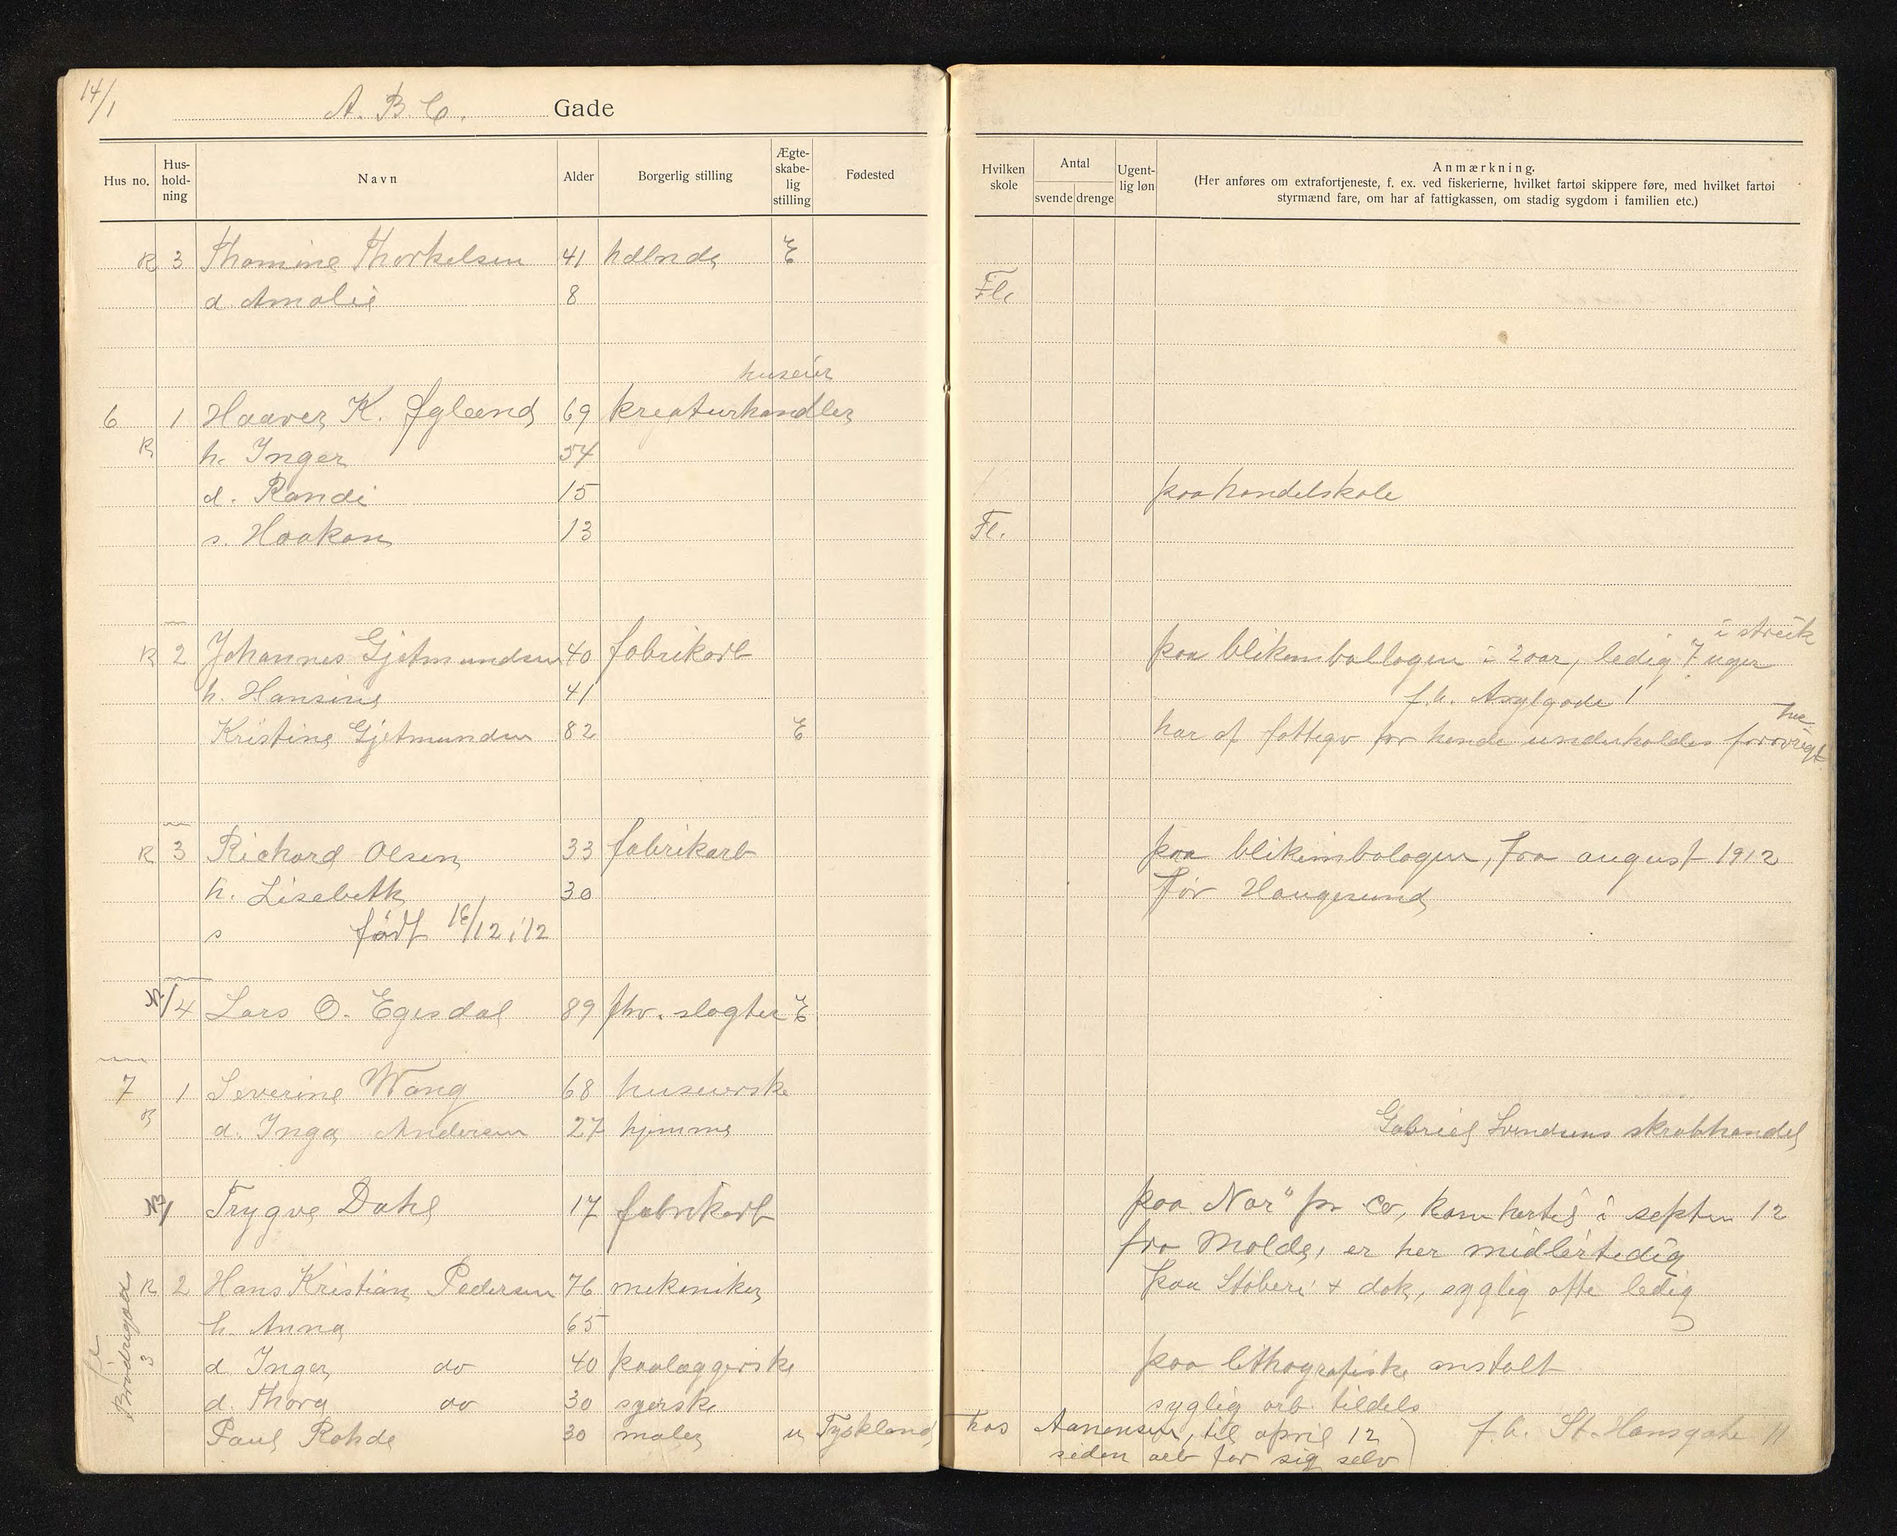 14/1
A. B. C. Gade
Hus no. Hus-hold-ning Navn Alder Borgerlig stilling Ægte-skabe-lig stilling Fødested
Hvilken skole Antal svende drenge Ugent-lig løn Anmærkning.
(Her anføres om extrafortjeneste, f. ex. ved fiskerierne, hvilket fartøi skippere føre, med hvilket fartøi
styrmænd fare, om har af fattigkassen, om stadig sygdom i familien etc.)
R 3 Thomine Thorkelsen 41 hdlnde E
d Amalie 8 Fl.
huseier
6 1 Haaver K. Øgland 69 kreaturhandler
R h. Inger 54
d. Randi 15 paa handelskole
s. Haakon 13 Fl.
i streik
R 2 Johannes Gjetmundsen 40 fabrikarb paa blikemballagen i 2 aar, ledig 7 uger
h. Hansine 41 f.h. Asylgade 1
Kristine Gjetmundsen 82 E har af fattigv for hende underholdes forøvrigt
R 3 Richard Olsen 33 fabrikarb paa blikimbalagen, fra august 1912
h. Lisebeth 30 før Haugesund
s født 16/12 '12
4 Lars O. Egesdal 89 fhv. slagter E
7 1 Severine Wang 68 huseierske
R d. Inga Andersen 27 hjemme Gabriel Svendsens skrabhandel
Trygve Dahl 17 fabrikarb paa Nor" pr co, kom hertil i septem 12
fra Molde, er her midlertidig
R 2 Hans Kristian Pedersen 76 mekaniker paa Støberi + dok, sygelig ofte ledig
h. Anna 65
d Inger do 40 paalæggerske paa lithografiske anstalt
d. Thora do 30 syerske syglig arb. tildels
Paul Rohde 30 maler u Tyskland hos Aanensen, til april 12 f.h. St. Hansgate 11
siden arb for sig selv
3